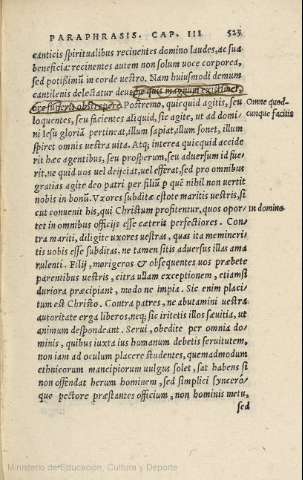 PARAPHRASIS. CAP. III 523
canticis spiritualibus recinentes domino laudes, ac sua
beneficia: recinentes autem non solum uoce corporea,
sed potißimũ in corde uestro. Nam huiusmodi demum
cantilenis delectatur deus
Postremo, quicquid agitis, seu
Omne quod-
loquentes, seu facientes aliquid, sic agite, ut ad domi-
cunque facitis
ni Iesu gloriã pertineat, illum sapiat, illum sonet, illum
spiret omnis uestra uita. Atq; interea quicquid accide
rit hæc agentibus, seu prosperum, seu aduersum id fue-
rit, ne quid uos uel deijciat, uel efferat, sed pro omnibus
gratias agite deo patri per filiũ p quẽ nihil non uertit
nobis in bonũ. Vxores subditæ estote maritis uestris, si
cut conuenit his, qui Christum profitentur, quos opor
in domino
tet in omnibus officijs esse cæteris perfectiores. Con-
tra mariti, diligite uxores uestras, quas ita memineri-
tis uobis esse subditas, ne tamen sitis aduersus illas ama
rulenti. Filij, morigeros & obsequentes uos præbete
parentibus uestris, citra ullam exceptionem, etiamsi
duriora præcipiant, modo ne impia. Sic enim placi-
tum est Christo. Contra patres, ne abutamini uestra
autoritate erga liberos, neq; sic iritetis illos sæuitia, ut
animum despondeant. Serui, obedite per omnia do-
minis, quibus iuxta ius humanum debetis seruitutem,
non iam ad oculum placere studentes, quemadmodum
ethnicorum mancipiorum uulgus solet, sat habens si
non offendat herum hominem, sed simplici synceró-
que pectore præstantes officium, non hominis metu,
sed
Ministerio de Educación, Cultura y Deporte